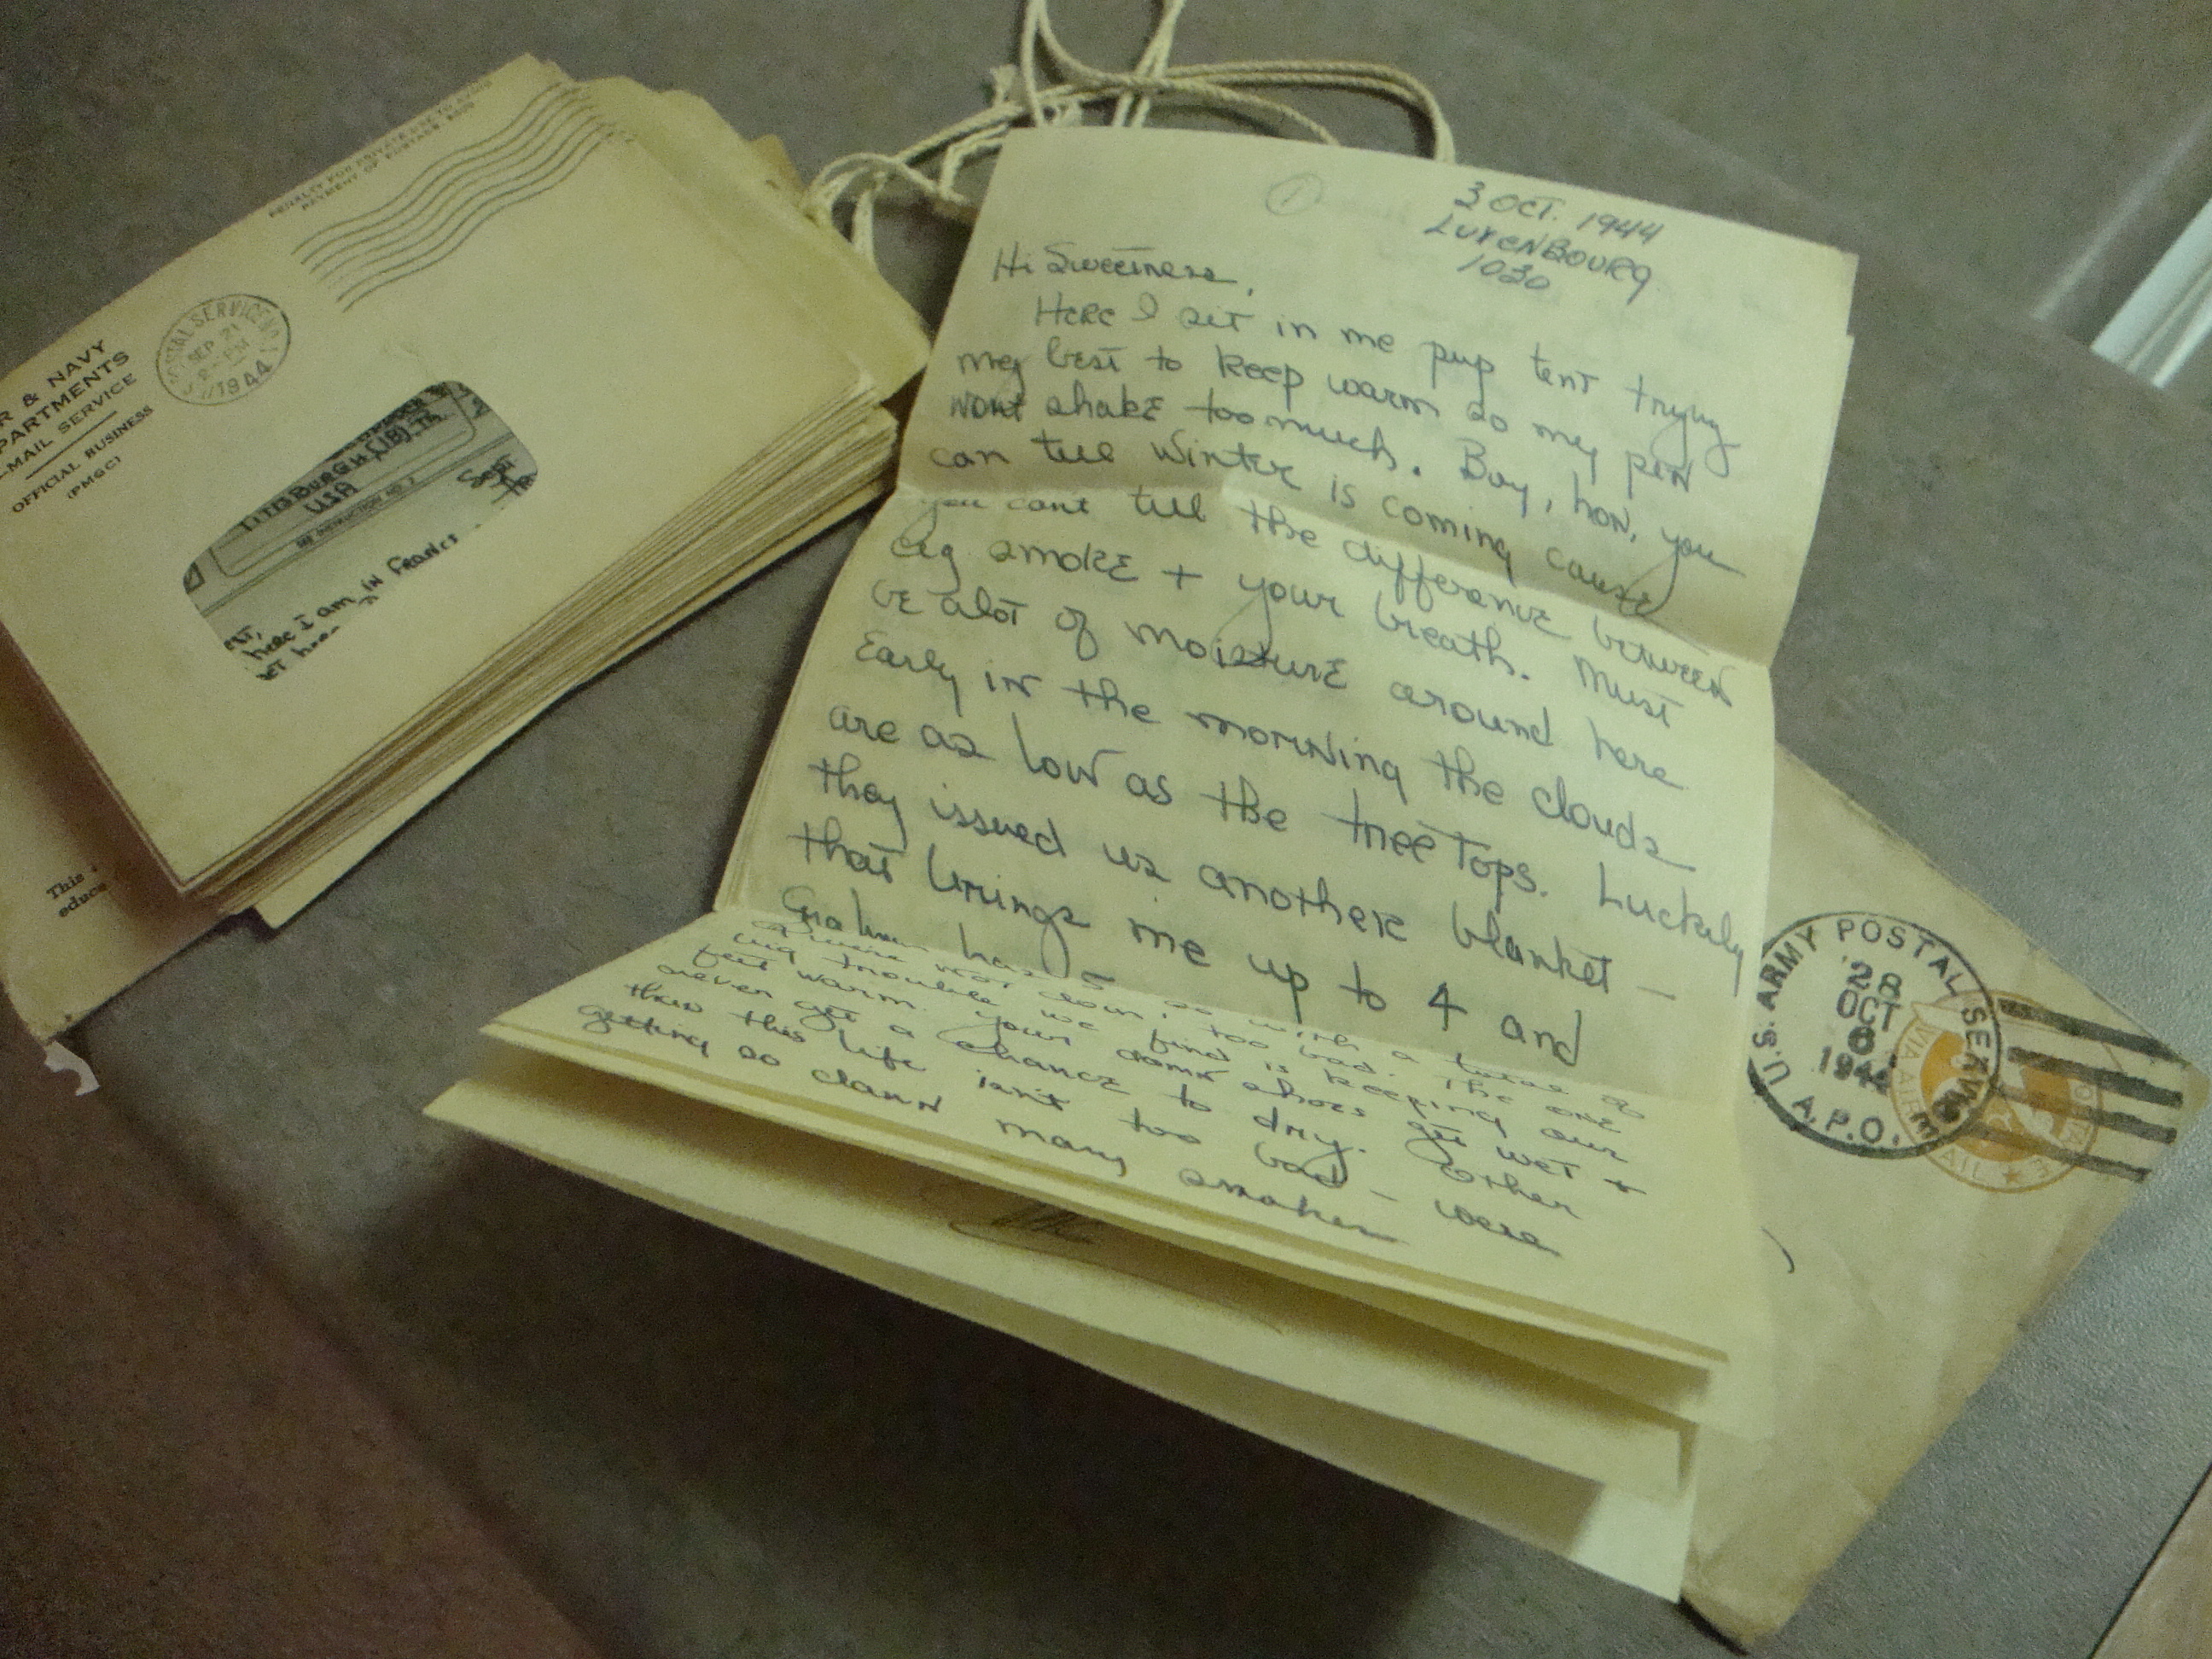 PENALTY FOR PRIVATE USE TO AVOID
PAYMENT OF POSTAGE, $300
R & NAVY
PARTMENTS
-MAIL SERVICE
OFFICIAL BUSINESS
(PMGC)
POSTAL SERVICE NO. 1
SEP 21
PM
1944
PITTSBURGH (18), PA.
USA
SEE INSTRUCTION NO. 2
Sept
here I am in France
This
educe
1
3 OCT. 1944
LUXENBOURG
1030
Hi Sweetness,
Here I sit in me pup tent trying
my best to keep warm so my pen
wont shake too much. Boy, hon, you
can tell Winter is coming cause
you cant tell the difference between
cig smoke + your breath. Must
be alot of moisture around here
Early in the morning the clouds
are as low as the tree tops. Luckily
they issued us another blanket –
that brings me up to 4 and
Graham has 5 so with a total of
9 were not doin' too bad. The one
big trouble we find is keeping our
feet warm. Your damn shoes get wet +
never get a chance to dry. Other
than this life isnt too bad – were
getting so damn many smokes
U.S. ARMY POSTAL SERVICE
28
OCT
6
1944
A.P.O.
VIA AIR MAIL